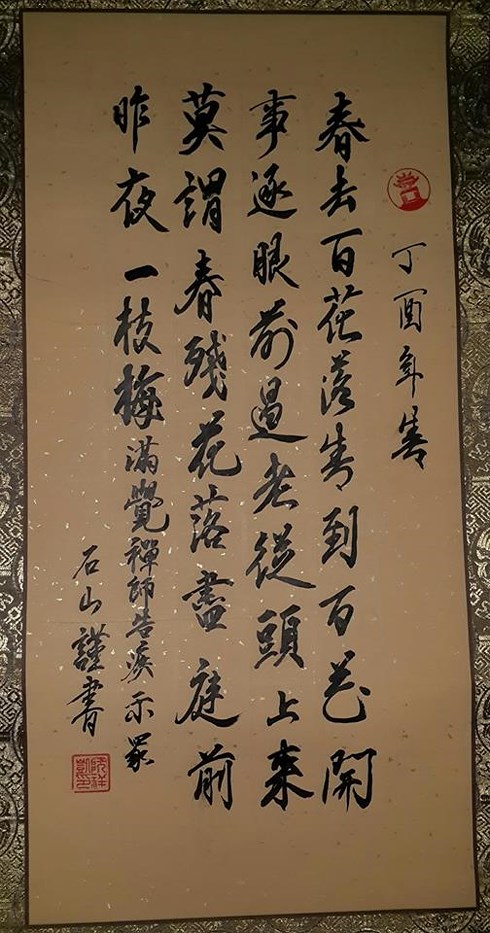 丁酉年春
春去百花落春到百花開
事逐眼前過老從頭上來
莫謂春殘花落盡庭前
昨夜一枝梅滿覺禪師告疾示眾
石山謹書